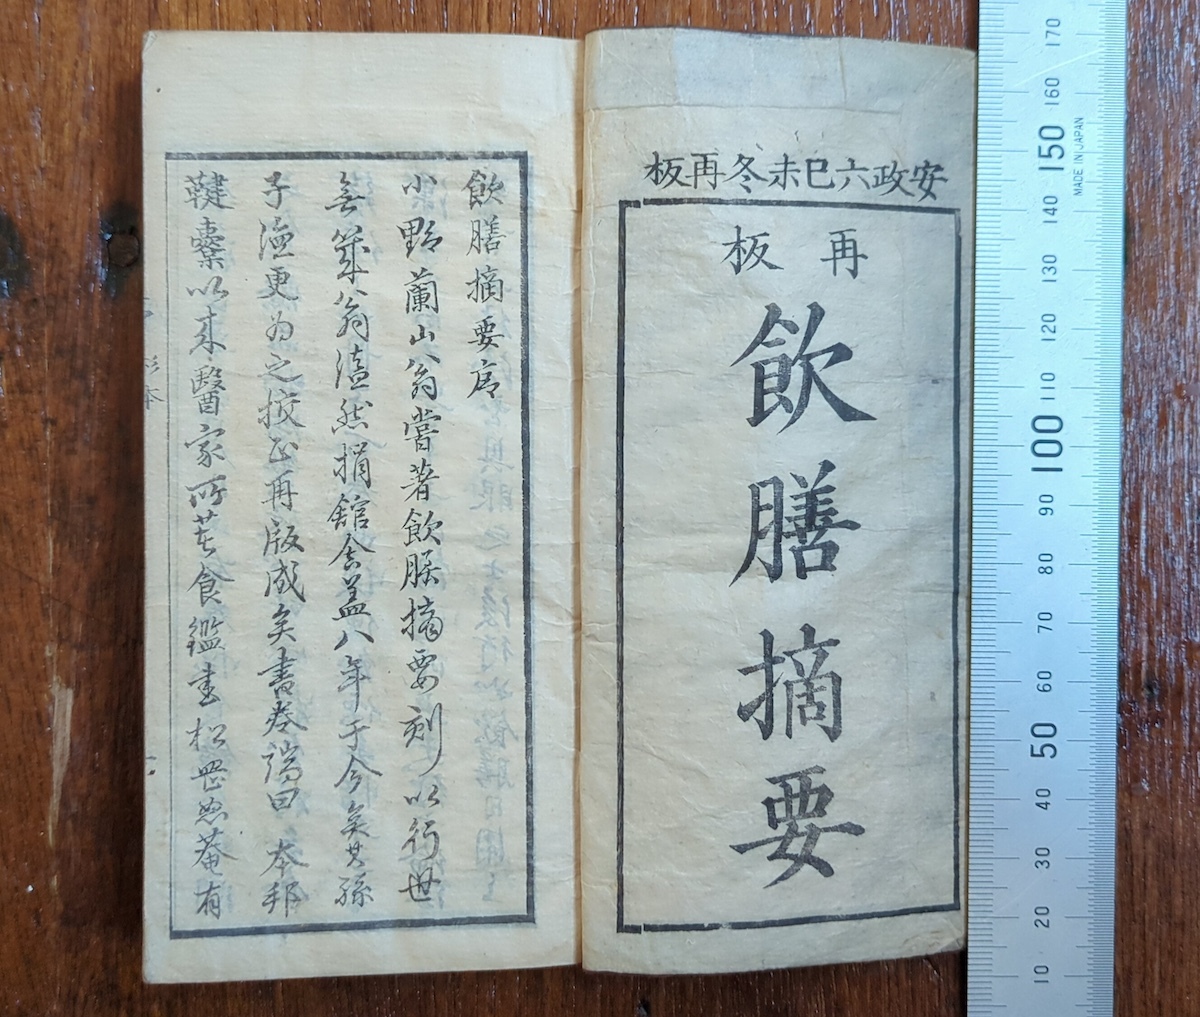 安政六巳未冬再板
再板
飲膳摘要
飲膳摘要序
小野蘭山翁嘗著飲膳摘要刻以行世
無幾翁溘然捐館舍盖八年于今矣其孫
子徳更為之挍正再版成矣書卷端曰本邦
鞬櫜以来醫家所著食鑑書松岡恕菴有
MADE IN JAPAN
170
160
150
140
130
120
110
100
90
80
70
60
50
40
30
20
10